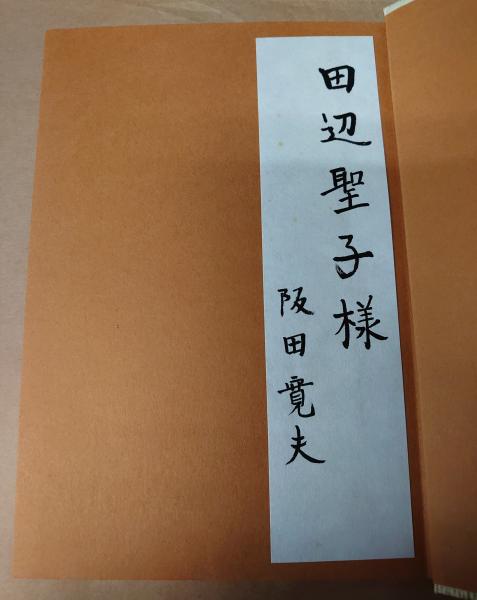 田辺聖子様
阪田寛夫